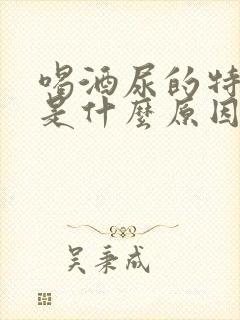 喝酒尿的特
是什麼原因
吴秉成